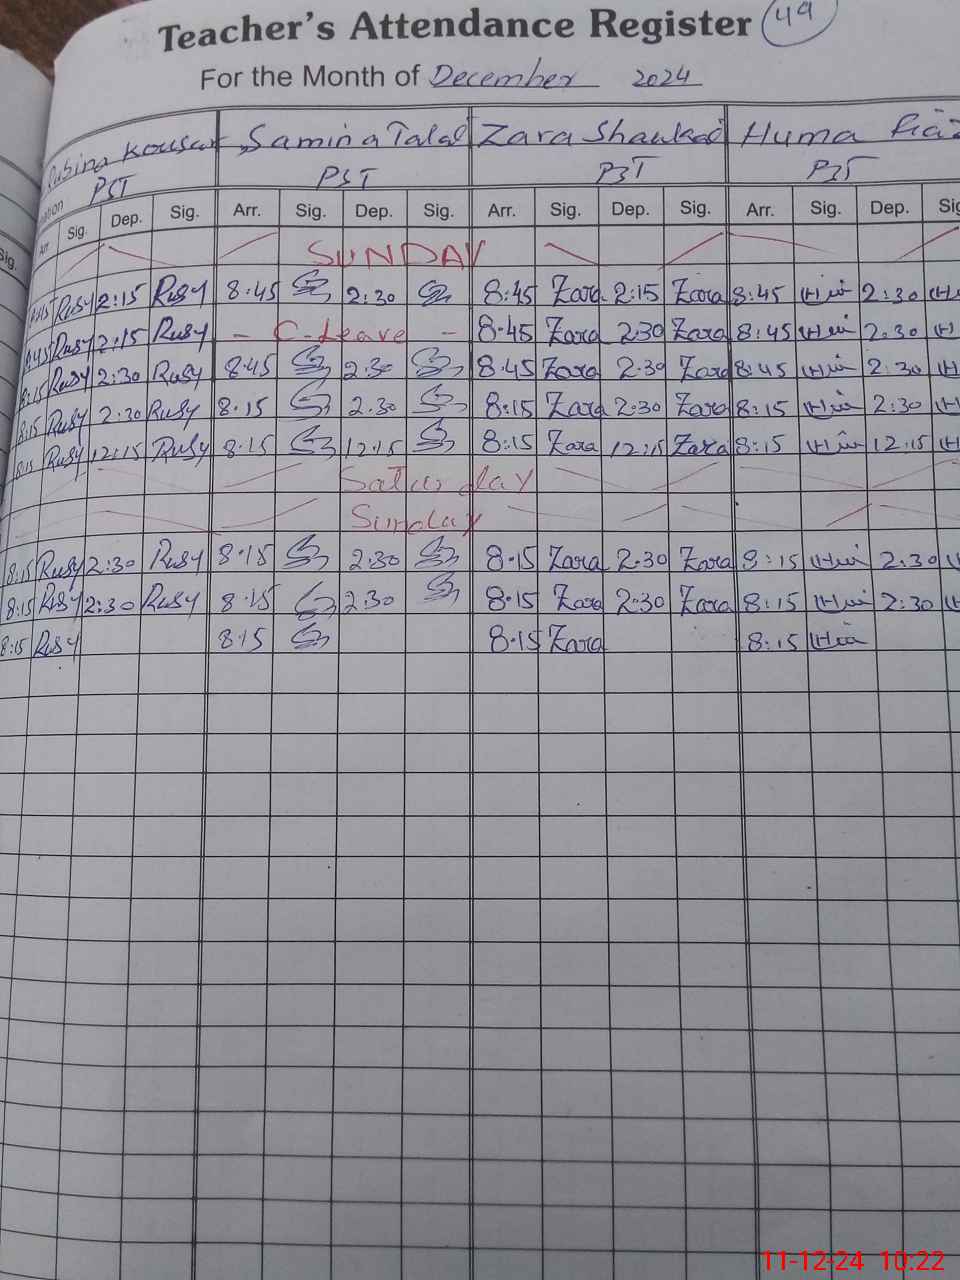 Teacher's Attendance Register 49
For the Month of December 2024
Rubina Kousar Samina Talal Zara Shaukat Huma
PST PST PST PST
Arr. Sig. Dep. Sig. Arr. Sig. Dep. Sig. Arr. Sig. Dep. Sig. Arr. Sig. Dep. Sig
SUNDAY
8:45 Rusy 2:15 Rusy 8:45 2:30 8:45 Zara 2:15 Zara 8:45 2:30
8:45 Rusy 2:15 Rusy - C-Leave - 8:45 Zara 2:30 Zara 8:45 2:30
8:15 Rusy 2:30 Rusy 8:45 2:30 8:45 Zara 2:30 Zara 8:45 2:30
8:15 Rusy 2:30 Rusy 8:15 2:30 8:15 Zara 2:30 Zara 8:15 2:30
8:15 Rusy 12:15 Rusy 8:15 12:15 8:15 Zara 12:15 Zara 8:15 12:15
Saturday
Sunday
8:15 Rusy 2:30 Rusy 8:15 2:30 8:15 Zara 2:30 Zara 8:15 2:30
8:15 Rusy 2:30 Rusy 8:15 2:30 8:15 Zara 2:30 Zara 8:15 2:30
8:15 Rusy 8:15 8:15 Zara 8:15
11-12-24 10:22